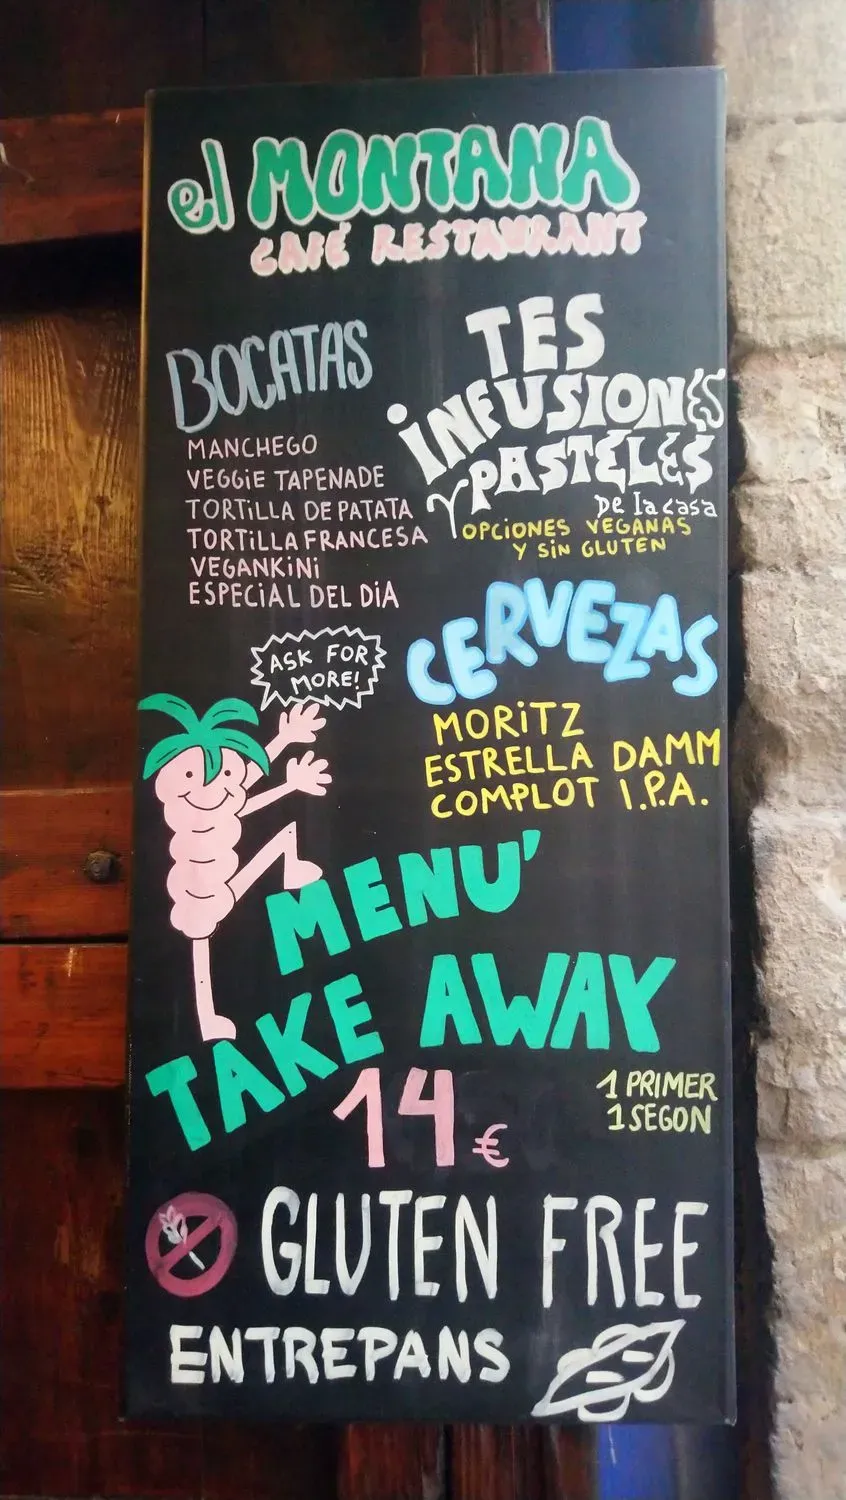 el MONTANA
CAFÉ RESTAURANT
BOCATAS
MANCHEGO
VEGGiE TAPENADE
TORTiLLA DE PATATA
TORTiLLA FRANCESA
VEGANKiNi
ESPECiAL DEL DiA
TES
iNFUSIONES
Y PASTELES
De la casa
OPCIONES VEGANAS
Y SiN GLUTEN
CERVEZAS
MORiTZ
ESTRELLA DAMM
COMPLOT I.P.A.
ASK FOR
MORE!
MENU'
TAKE AWAY
14 €
1 PRIMER
1 SEGON
GLUTEN FREE
ENTREPANS